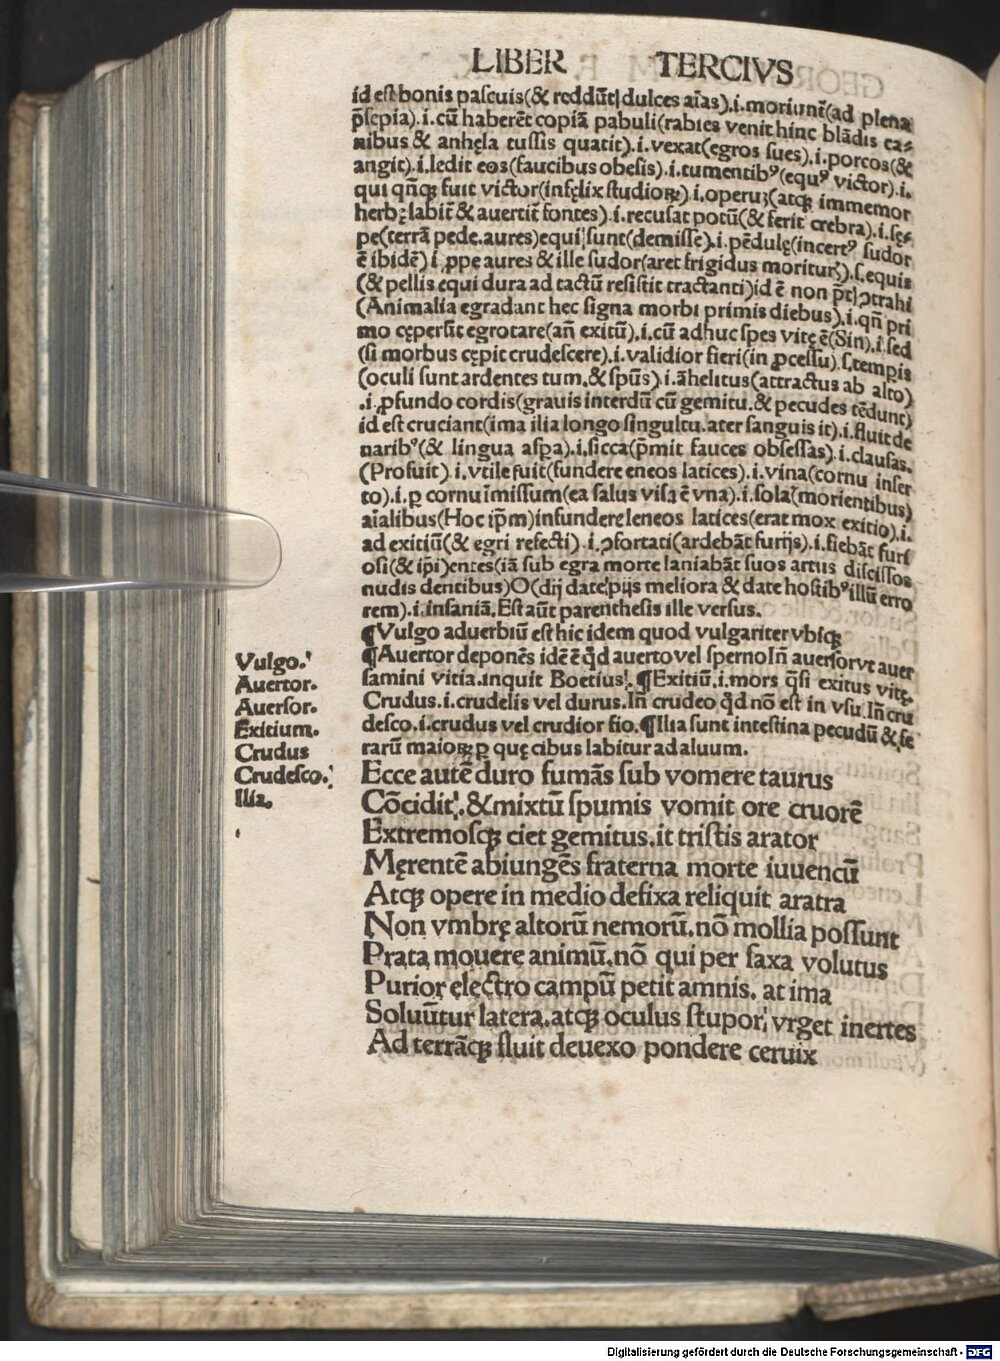 LIBER TERCIVS
id est bonis pascuis(& reddūt dulces aīas).i.moriunt̄(ad plena
p̄sepia).i.cū haberēt copiā pabuli(rabies venit hinc blādis ca⸗
nibus & anhęla tussis quatit).i.vexat(egros sues).i.porcos(&
angit).i.ledit eos(faucibus obesis).i.tumentibꝰ(equꝰ victor).i.
qui qn̄qꝫ fuit victor(infęlix studioꝝ).i.operuꝫ(atqꝫ immemor
herbę labit̄ & auertit̄ fontes).i.recusat potū(& ferit crebra).i.sę⸗
pe(terrā pede.aures)equi sunt(demisse).i.pēdulę(incertꝰ sudor
ē ibidē) i ꝓpe aures & ille sudor(aret frigidus moriturꝭ).s.equis
(& pellis equi dura ad tactū resistit tractanti)id ē non p̄t ꝯtrahi
(Animalia egra dant hec signa morbi primis diebus).i.qn̄ pri
mo cęperūt egrotare(an̄ exitū).i.cū adhuc spes vitę ē(Sin).i.sed
(si morbus cępit crudescere).i.validior fieri(in ꝓcessu).s.tempis
(oculi sunt ardentes tum.& spūs).i.āhelitus(attractus ab alto)
.i.ꝓfundo cordis(grauis interdū cū gemitu.& pecudes tēdunt)
id est cruciant(ima ilia longo singultu.ater sanguis it).i.fluit de
naribꝰ(& lingua aspa).i.sicca(p̄mit fauces obsessas).i.clausas.
(Profuit).i.vtile fuit(fundere eneos latices).i.vina(cornu inser
to).i.ꝑ cornu īmissum(ea salus visa ē vna).i.sola(morientibus)
aīalibus(Hoc ip̄m)infundere leneos latices(erat mox exitio).i.
ad exitiū(& egri refecti).i.ꝯfortati(ardebāt furijs).i.fiebāt furi
osi(& ip̄i)entes(iā sub egra morte laniabāt suos artus discissos
nudis dentibus)O(dij date pijs meliora & date hostibꝰ illū erro
rem).i.insaniā.Est aūt parenthesis ille versus.
¶Vulgo aduerbiū est hic idem quod vulgariter vbiqꝫ
¶Auertor deponēs idē ē qd̄ auerto vel sperno In̄ auersor vt auer
samini vitia.inquit Boetius. ¶Exitiū.i.mors q̄si exitus vitę.
Crudus.i.crudelis vel durus.In̄ crudeo qd̄ nō est in vsu.In̄ cru
desco.i.crudus vel crudior fio.¶Ilia sunt intestina pecudū & fe
rarū maioꝝ ꝑ quę cibus labitur ad aluum.
Vulgo.
Auertor.
Auersor.
Exitium.
Crudus
Crudesco.
Ilia.
Ecce autē duro fumās sub vomere taurus
Cōcidit.&mixtū spumis vomit ore cruorē
Extremosqꝫ ciet gemitus.it tristis arator
Męrentē abiungēs fraterna morte iuuencū
Atqꝫ opere in medio defixa reliquit aratra
Non vmbrę altorū nemorū.nō mollia possunt
Prata mouere animū.nō qui per saxa volutus
Purior electro campū petit amnis. at ima
Soluūtur latera.atqꝫ oculus stupor vrget inertes
Ad terrāqꝫ fluit deuexo pondere ceruix
Digitalisierung gefördert durch die Deutsche Forschungsgemeinschaft - DFG